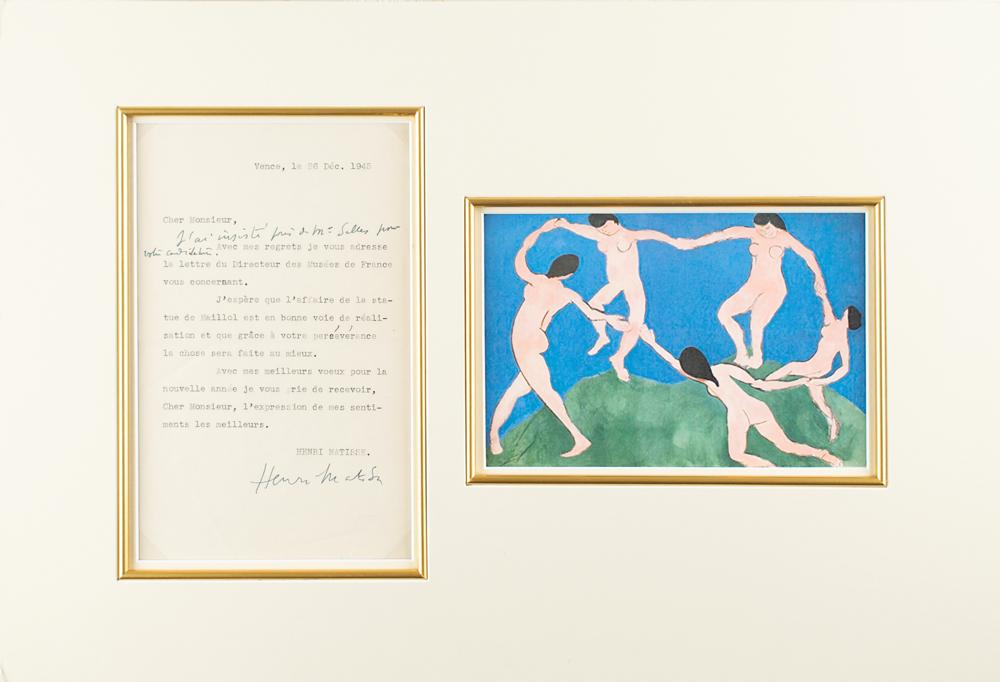 Vence, le 26 Déc. 1945
Cher Monsieur,
J'ai insisté près de Mr Salles pour
votre candidature.
Avec mes regrets je vous adresse
la lettre du Directeur des Musées de France
vous concernant.
J'espère que l'affaire de la sta-
tue de Maillol est en bonne voie de réali-
sation et que grâce à votre persévérance
la chose sera faite au mieux.
Avec mes meilleurs voeux pour la
nouvelle année je vous prie de recevoir,
Cher Monsieur, l'expression de mes senti-
ments les meilleurs.
HENRI MATISSE.
Henri Matisse